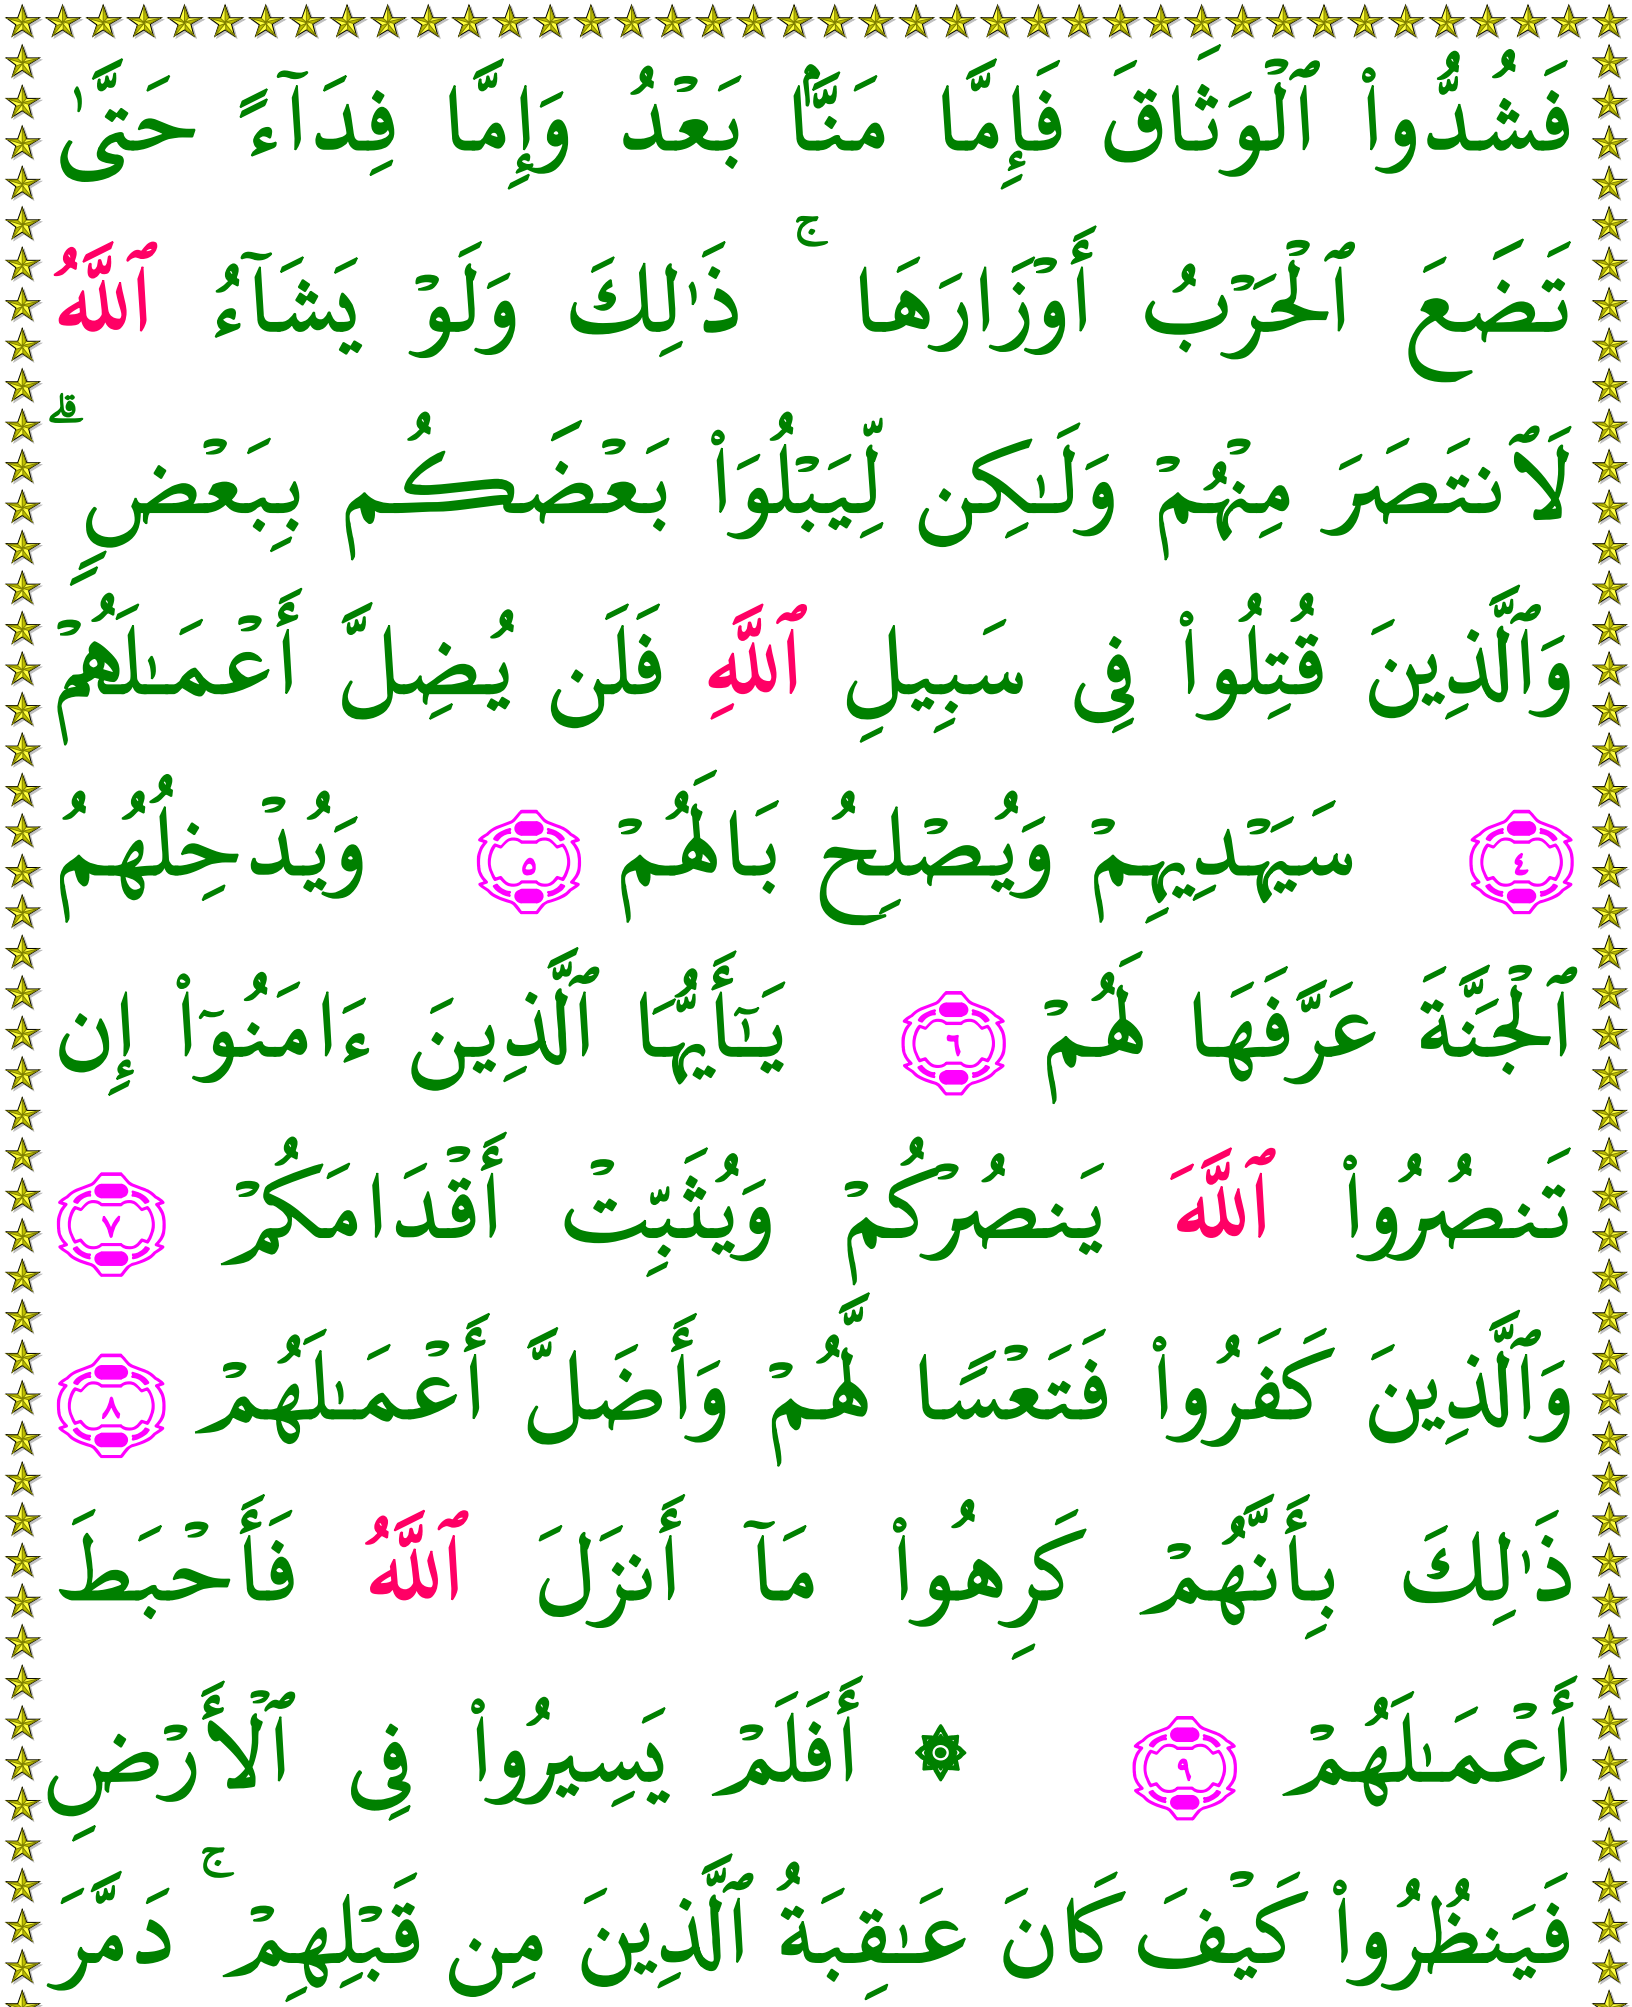 فَشُدُّوا۟ ٱلْوَثَاقَ فَإِمَّا مَنًّۢا بَعْدُ وَإِمَّا فِدَآءً حَتَّىٰ
تَضَعَ ٱلْحَرْبُ أَوْزَارَهَا ۚ ذَٰلِكَ وَلَوْ يَشَآءُ ٱللَّهُ
لَٱنتَصَرَ مِنْهُمْ وَلَـٰكِن لِّيَبْلُوَا۟ بَعْضَكُم بِبَعْضٍ ۗ
وَٱلَّذِينَ قُتِلُوا۟ فِى سَبِيلِ ٱللَّهِ فَلَن يُضِلَّ أَعْمَـٰلَهُمْ
٤ سَيَهْدِيهِمْ وَيُصْلِحُ بَالَهُمْ ٥ وَيُدْخِلُهُمُ
ٱلْجَنَّةَ عَرَّفَهَا لَهُمْ ٦ يَـٰٓأَيُّهَا ٱلَّذِينَ ءَامَنُوٓا۟ إِن
تَنصُرُوا۟ ٱللَّهَ يَنصُرْكُمْ وَيُثَبِّتْ أَقْدَامَكُمْ ٧
وَٱلَّذِينَ كَفَرُوا۟ فَتَعْسًا لَّهُمْ وَأَضَلَّ أَعْمَـٰلَهُمْ ٨
ذَٰلِكَ بِأَنَّهُمْ كَرِهُوا۟ مَآ أَنزَلَ ٱللَّهُ فَأَحْبَطَ
أَعْمَـٰلَهُمْ ٩ ۞ أَفَلَمْ يَسِيرُوا۟ فِى ٱلْأَرْضِ
فَيَنظُرُوا۟ كَيْفَ كَانَ عَـٰقِبَةُ ٱلَّذِينَ مِن قَبْلِهِمْ ۚ دَمَّرَ